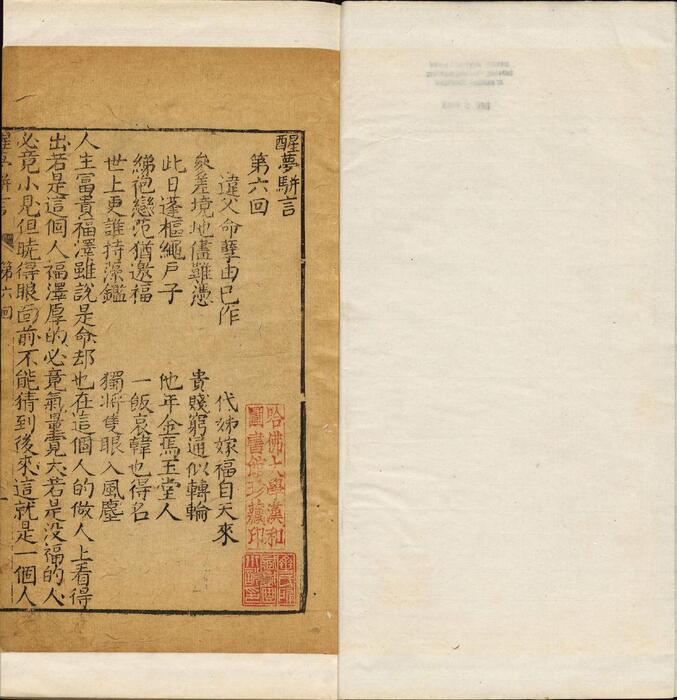 醒夢駢言
第六回
違父命孽由已作　代姊嫁福自天來
參差境地儘難憑　貴賤窮通似轉輪
此日蓬樞繩戶子　他年金馬玉堂人
綈袍戀范猶邀福　一飯哀韓也得名
世上更誰持藻鑑　獨將隻眼入風塵
人生富貴福澤雖說是命却也在這個人的做人上看得
出若是這個人福澤厚的必竟氣量寬大若是没福的人
必竟小見但曉得眼面前不能猜到後來這就是一個人
醒夢駢言　第六回　一
哈佛大學漢和
圖書館珍藏印